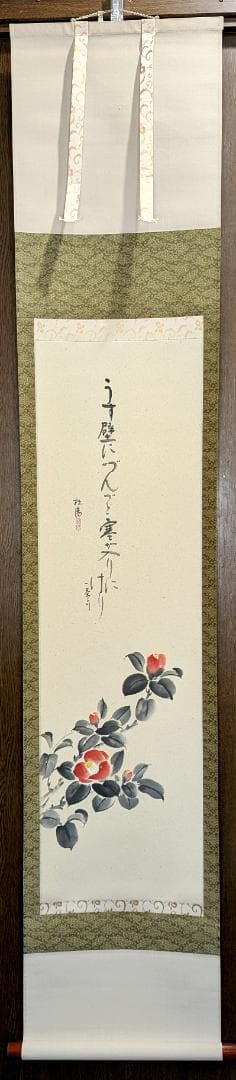 うす壁にづんづと寒が入りに
けり
一茶の句